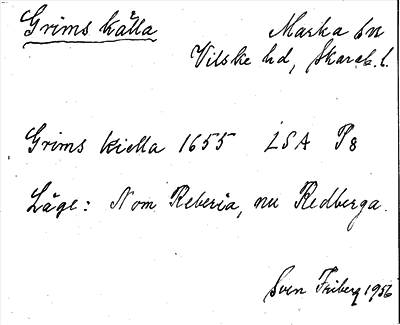 Grims källa Marka sn
Vilske hd, Skarab. l.
Grims kiella 1655 LSA P8
Läge: Nom Reberia, nu Redberga.
Sven Friberg 1956